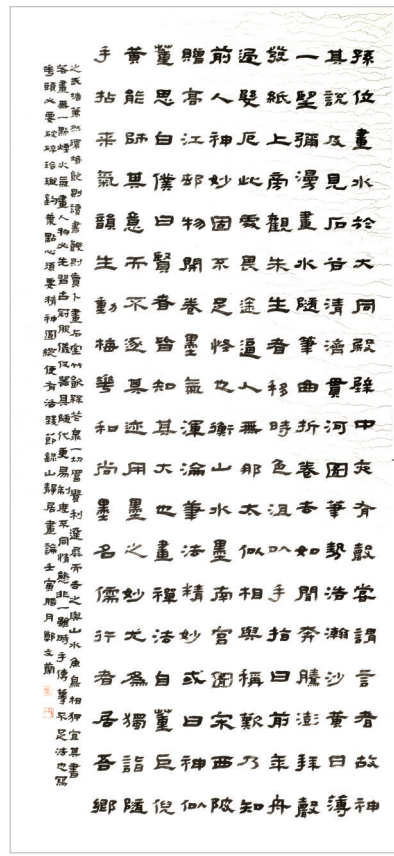 孫位畫水於大同殿壁中夜有聲嘗謂言者故神
其說及見石谷清濟貫河圖筆勢浩瀚沙黃日薄
一望彌漫畫水隨筆曲折卷去如聞奔騰澎拜聲
發紙上旁觀朱生者移時色沮以手指曰前年舟
過髮厄此處畏途逼人無那太似相與稱歎乃知
前人神妙固不足怪也衡山水墨南宮圖宋西陂
贈高江邨物開卷墨氣渾淪筆法精妙或曰神似
董思白僕曰賢者皆知其大也畫禪法自董巨倪
黃能師其意而不逐其迹用墨之妙尤為獨詣隨
手拈来氣韻生動梅華和尚墨名儒行者居吾鄉
之武塘蕭然環堵飲則讀書飢則賣卜畫石室竹飲梅花泉一切富貴利達屏而去之與山水魚鳥相狎宜其書
若畫無一點煙火氣畫人物必先習古冠服儀仗器具隨代更易制度不同情態非一雖時手傳摹不足法也寫
頭必要破碎玲瓏鉤葉點心須要精神圓綻便有活致節錄山靜居畫論壬寅腊月鄭文蘭